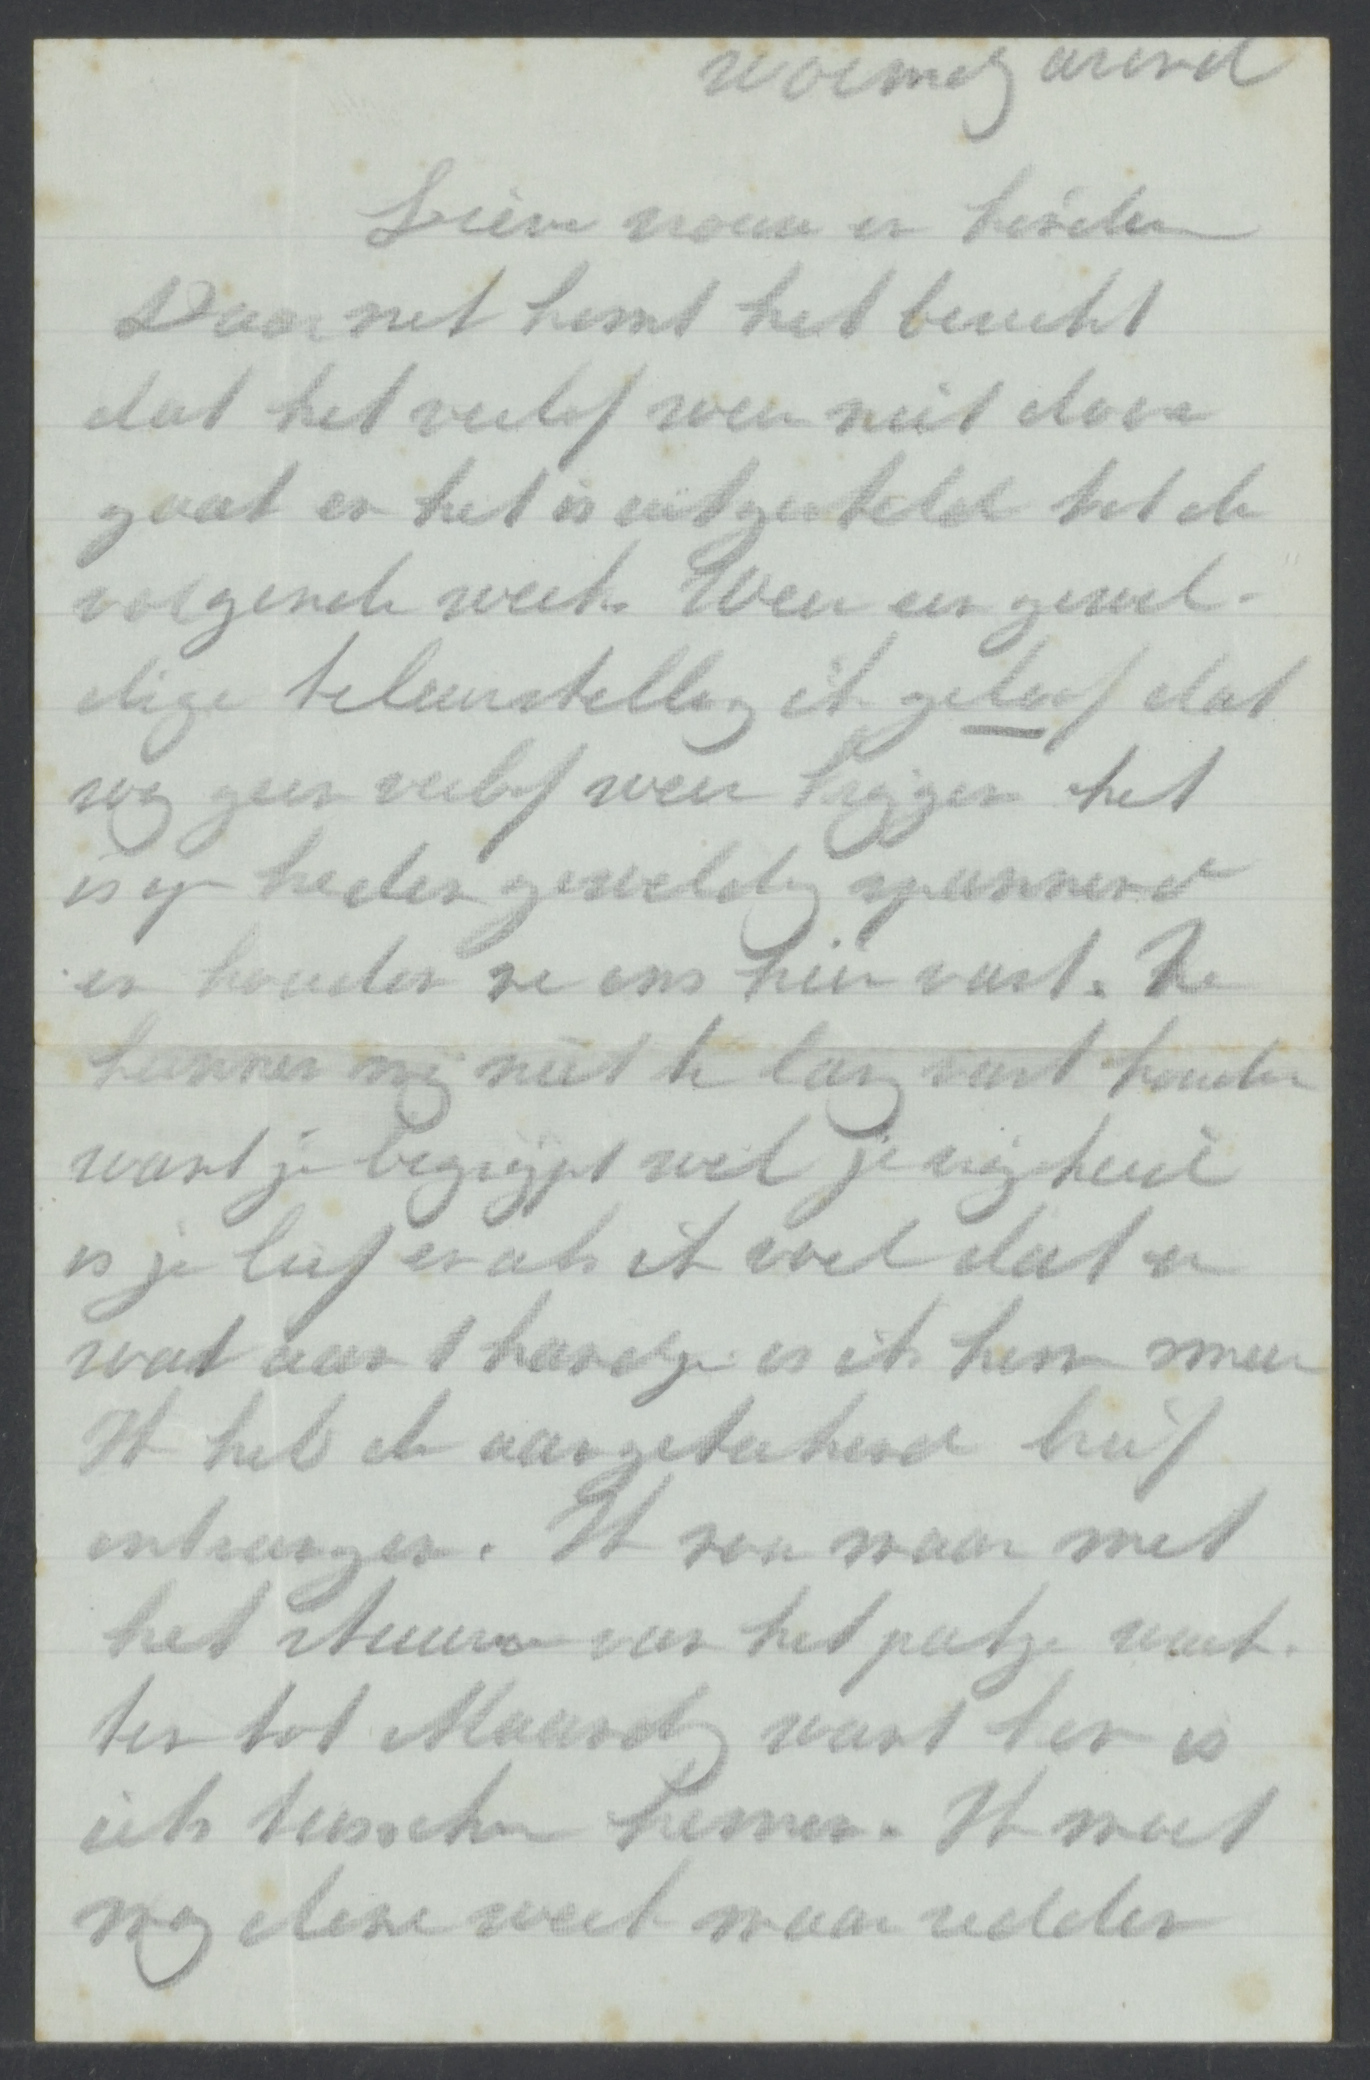 Woensdg avond
Lieve vrouw en kinden
Daar net komt het bericht
dat het verlof weer niet door
gaat en het is uitgesteld tot de
volgende week. Weer een gewel-
dige teleurstelling ik geloof dat
wij geen verlof weer krijgen het
is op heden geweldig spannend
en houden ze ons hier vast. Ze
kunnen mij niet te lang vast houden
want je begrijpt wel je vrijheid
is je lief en als ik voel dat er
wat aan t handje is ik kom
Ik heb de aangetekend brief
ontvangen. Ik zou maar met
het sturen van het pakje wach-
ten tot Maandg want ken is
iets tusschen komen. Ik moet
mij deze week maar redden